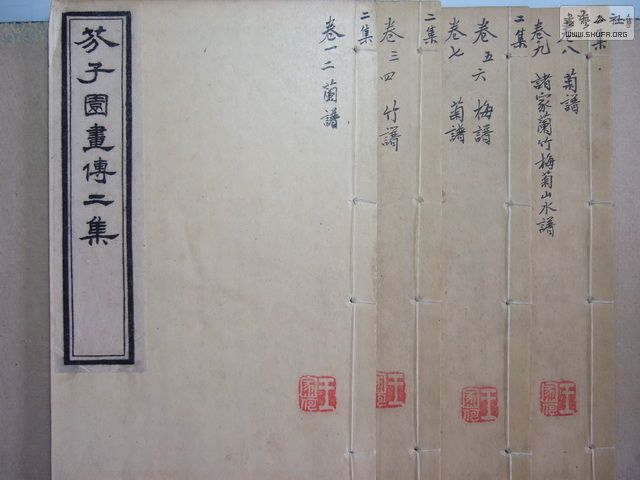 芥子園畫傳二集
二集
卷一二蘭譜
卷三四 竹譜
二集
卷五六 梅譜
卷七 菊譜
二集
菊譜
卷九 諸家蘭竹梅菊山水譜
WWW.SHUFA.ORG